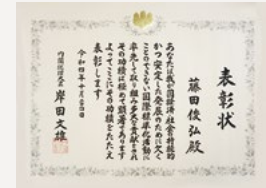 表彰状
藤田俊弘殿
あなたは我が国経済・社会の持続的
かつ安定した発展のために欠く
ことのできない国際標準化活動に
率先して取り組み多大な貢献をされ
その功績は極めて顕著であります
よってここにその功績をたたえ
表彰します
令和四年十月
内閣総理大臣 岸田文雄